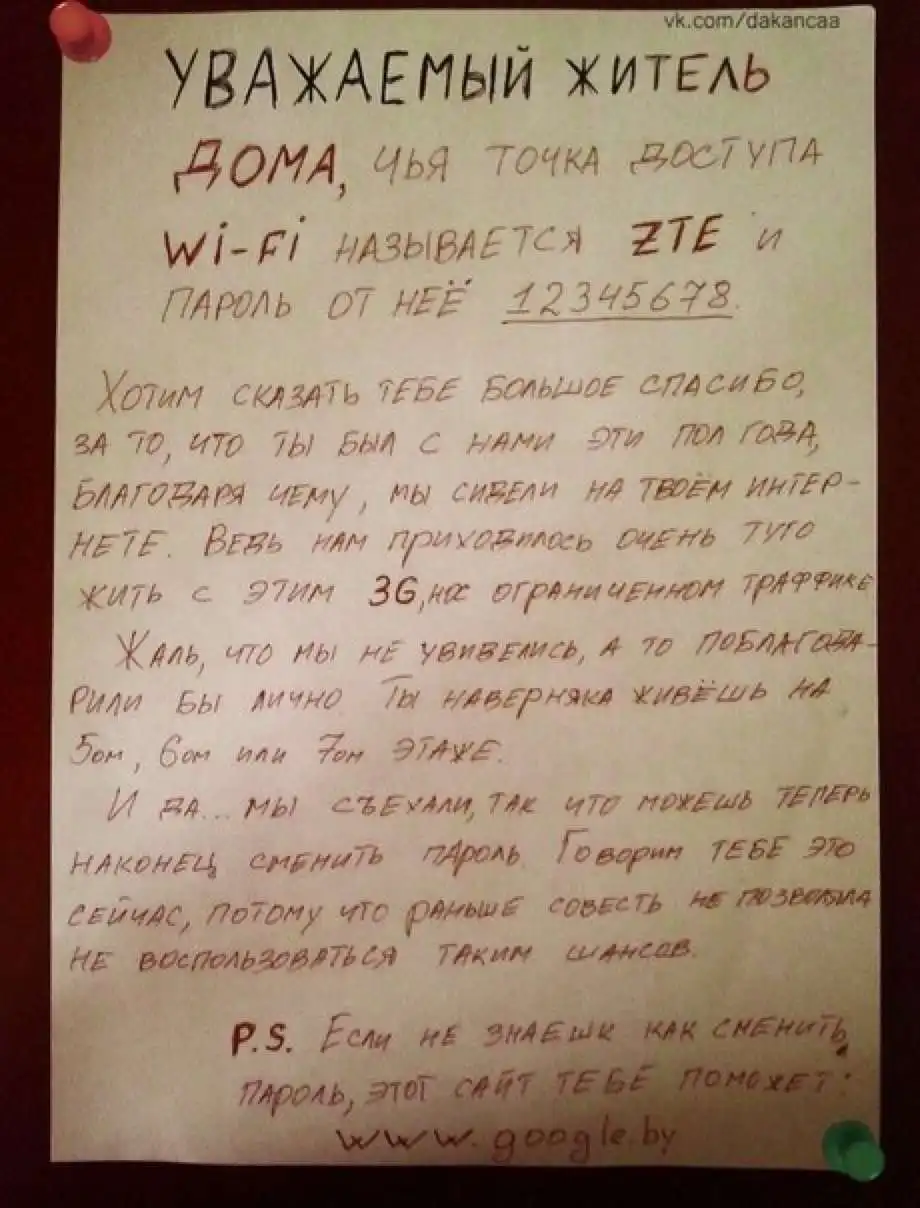 vk.com/dakancaa
УВАЖАЕМЫЙ ЖИТЕЛЬ
ДОМА, ЧЬЯ ТОЧКА ДОСТУПА
Wi-Fi НАЗЫВАЕТСЯ ZTE И
ПАРОЛЬ ОТ НЕЁ 12345678.
ХОТИМ СКАЗАТЬ ТЕБЕ БОЛЬШОЕ СПАСИБО,
ЗА ТО, ЧТО ТЫ БЫЛ С НАМИ ЭТИ ПОЛ ГОДА,
БЛАГОДАРЯ ЧЕМУ, МЫ СИДЕЛИ НА ТВОЁМ ИНТЕР-
НЕТЕ. ВЕДЬ НАМ ПРИХОДИЛОСЬ ОЧЕНЬ ТУГО
ЖИТЬ С ЭТИМ 3G, ОГРАНИЧЕННОМ ТРАФФИКЕ
ЖАЛЬ, ЧТО МЫ НЕ УВИДЕЛИСЬ, А ТО ПОБЛАГОДА-
РИЛИ БЫ ЛИЧНО. ТЫ НАВЕРНЯКА ЖИВЁШЬ НА
5ом, 6ом или 7ом ЭТАЖЕ.
И ДА... МЫ СЪЕХАЛИ, ТАК ЧТО МОЖЕШЬ ТЕПЕРЬ
НАКОНЕЦ СМЕНИТЬ ПАРОЛЬ. ГОВОРИМ ТЕБЕ ЭТО
СЕЙЧАС, ПОТОМУ ЧТО РАНЬШЕ СОВЕСТЬ НЕ ПОЗВОЛЯЛА
НЕ ВОСПОЛЬЗОВАТЬСЯ ТАКИМ ШАНСОВ.
P.S. ЕСЛИ НЕ ЗНАЕШЬ КАК СМЕНИТЬ
ПАРОЛЬ, ЭТОТ САЙТ ТЕБЕ ПОМОЖЕТ:
www.google.by